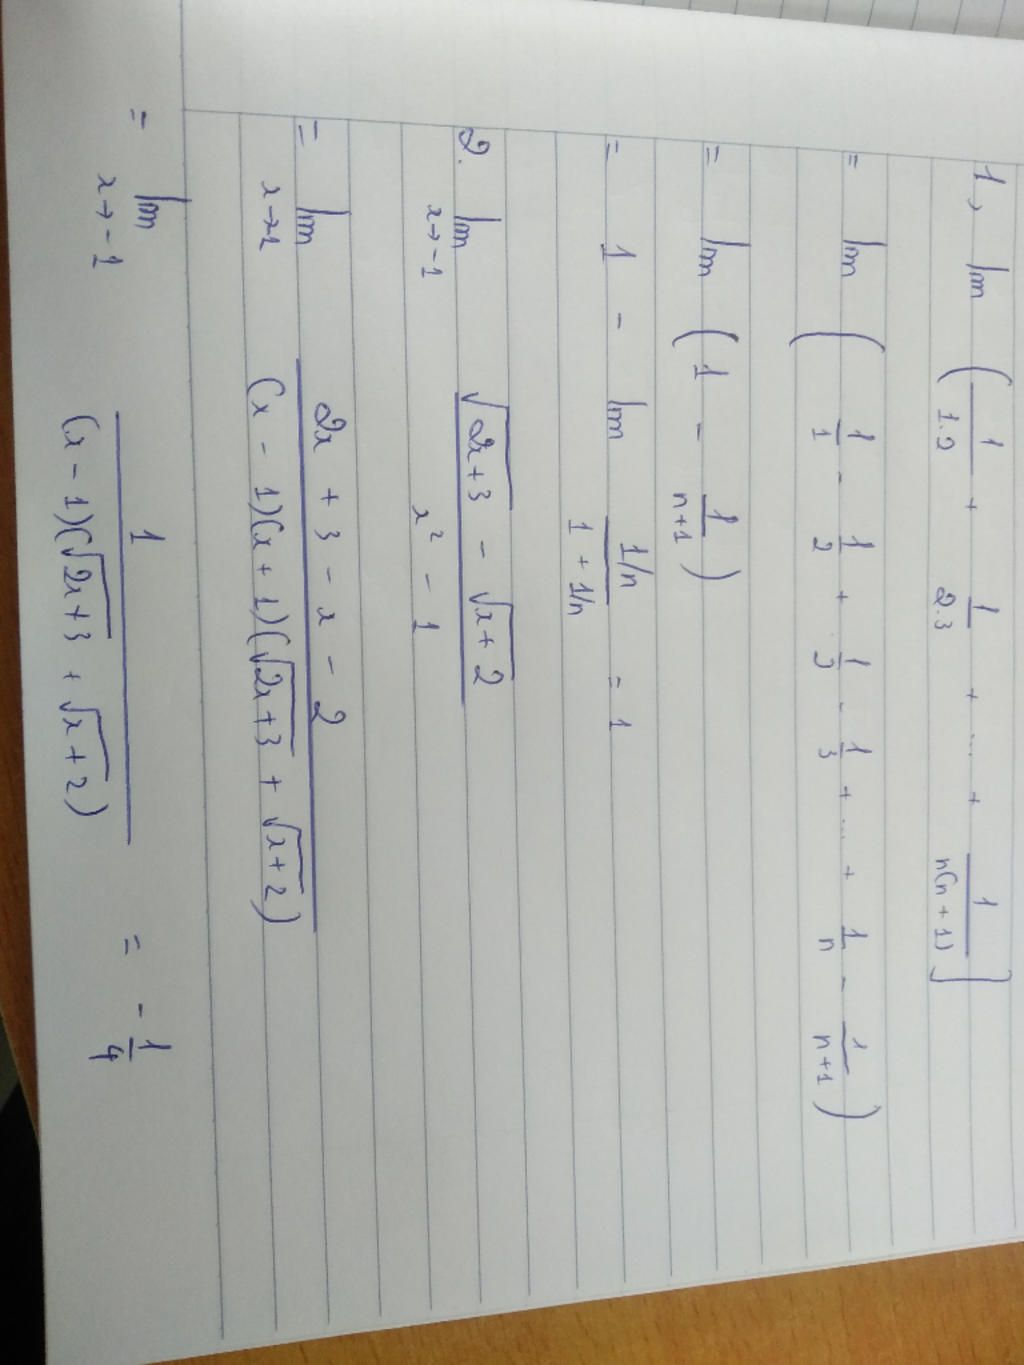 1, lim ( 1/1.2 + 1/2.3 + ... + 1/n(n + 1) ]
= lim ( 1/1 - 1/2 + 1/2 - 1/3 + ... + 1/n - 1/n+1 )
= lim ( 1 - 1/n+1 )
= 1 - lim (1/n)/(1 + 1/n) = 1
2. lim x→-1 (√(2x+3) - √(x+2))/(x² - 1)
= lim x→-1 (2x + 3 - x - 2)/((x - 1)(x + 1)(√(2x+3) + √(x+2)))
= lim x→-1 1/((x - 1)(√(2x+3) + √(x+2))) = -1/4